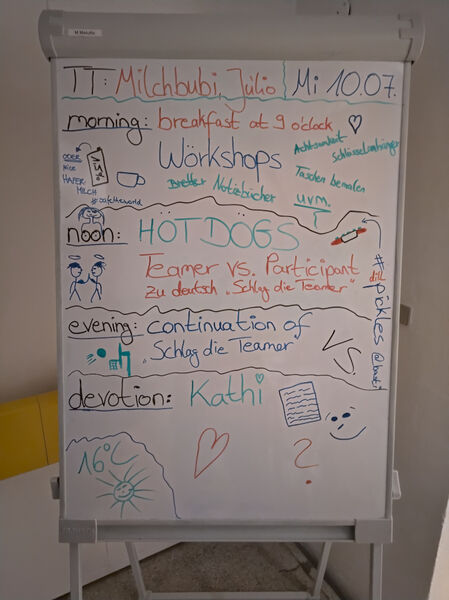 TT: Milchbubi, Julio Mi 10.07.
morning: breakfast at 9 o'clock
Wörkshops
Achtsamkeit
Schlüsselanhänger
Bretter Notizbücher
Taschen bemalen
uvm.
1,5%
ODER
HAFER
MILCH
#safetheworld
noon: HÖT DOGS
Teamer vs. Participant
zu deutsch „Schlag die Teamer"
#dill pickles @basti
evening: continuation of
„Schlag die Teamer"
VS.
devotion: Kathi
16°C
?